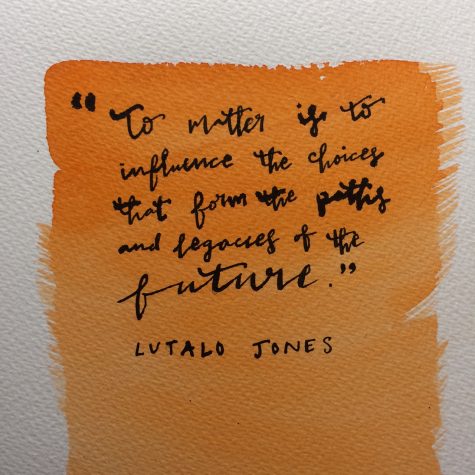 "To matter is to
influence the choices
that form the paths
and legacies of the
future."
LUTALO JONES